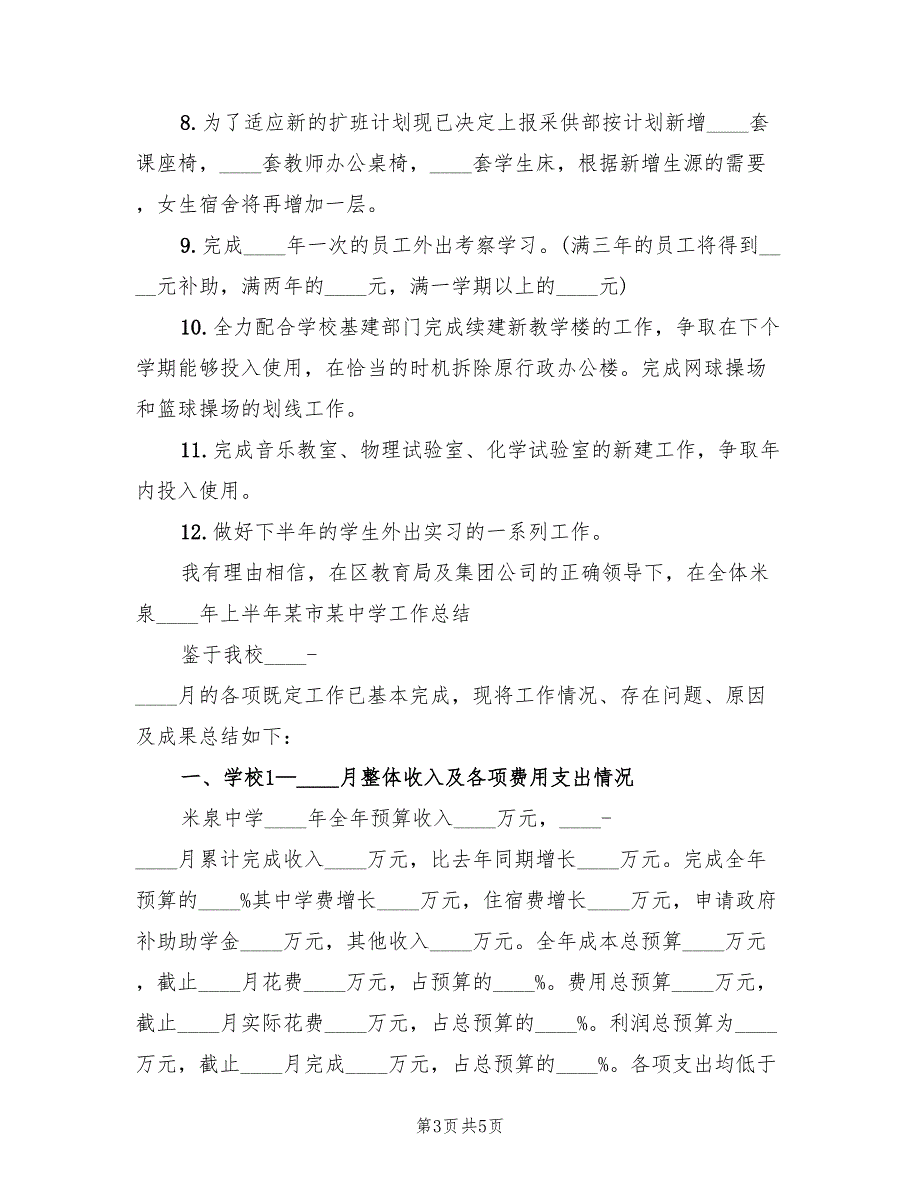 8. 为了适应新的扩班计划现已决定上报采供部按计划新增____套
课座椅，____套教师办公桌椅，____套学生床，根据新增生源的需要
，女生宿舍将再增加一层。
9. 完成____年一次的员工外出考察学习。(满三年的员工将得到__
__元补助，满两年的____元，满一学期以上的____元)
10. 全力配合学校基建部门完成续建新教学楼的工作，争取在下个
学期能够投入使用，在恰当的时机拆除原行政办公楼。完成网球操场
和篮球操场的划线工作。
11. 完成音乐教室、物理试验室、化学试验室的新建工作，争取年
内投入使用。
12. 做好下半年的学生外出实习的一系列工作。
我有理由相信，在区教育局及集团公司的正确领导下，在全体米
泉____年上半年某市某中学工作总结
鉴于我校____-
____月的各项既定工作已基本完成，现将工作情况、存在问题、原因
及成果总结如下：
一、学校1—____月整体收入及各项费用支出情况
米泉中学____年全年预算收入____万元，____-
____月累计完成收入____万元，比去年同期增长____万元。完成全年
预算的____%其中学费增长____万元，住宿费增长____万元，申请政府
补助助学金____万元，其他收入____万元。全年成本总预算____万元
，截止____月花费____万元，占预算的____%。费用总预算____万元，
截止____月实际花费____万元，占总预算的____%。利润总预算为____
万元，截止____月完成____万元，占总预算的____%。各项支出均低于
第3页共5页